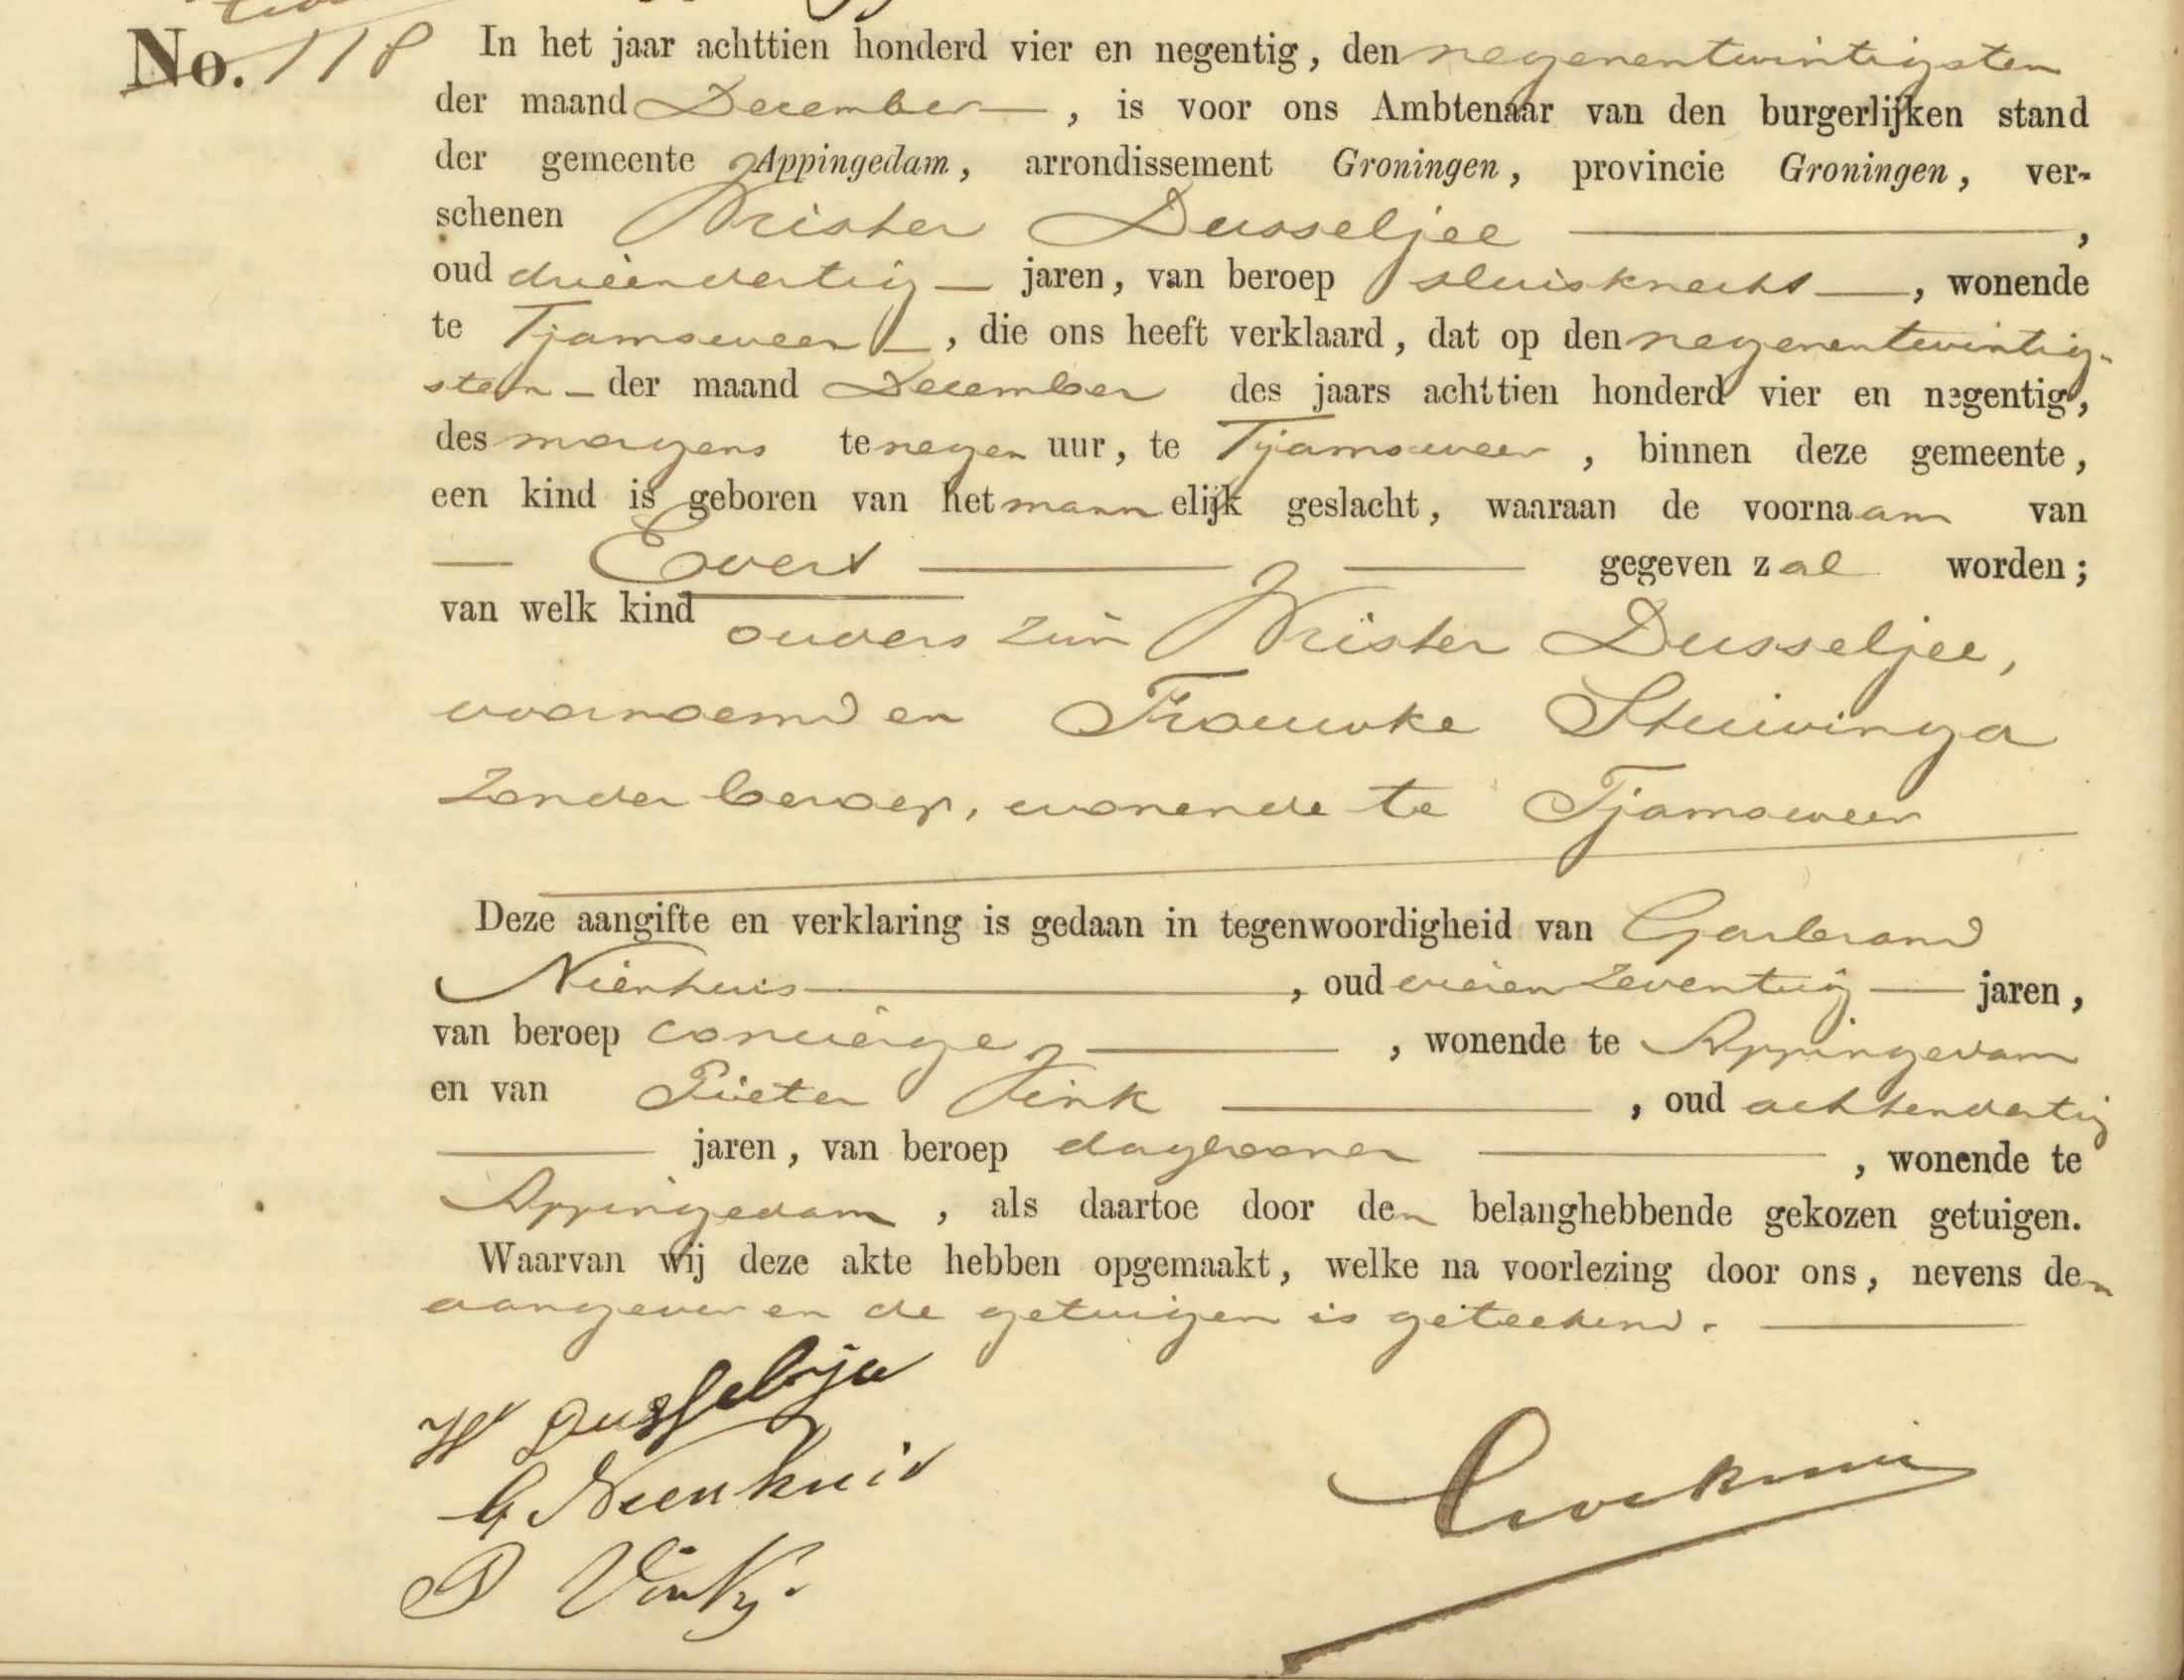 No. 118 In het jaar achttien honderd vier en negentig, den negenentwintigsten
der maand December, is voor ons Ambtenaar van den burgerlijken stand
der gemeente Appingedam, arrondissement Groningen, provincie Groningen, ver-
schenen Wister Dusseljee,
oud drieendertig jaren, van beroep sluisknecht, wonende
te Tjamsweer, die ons heeft verklaard, dat op den negenentwintig-
sten der maand December des jaars achttien honderd vier en negentig,
des morgens te negen uur, te Tjamsweer, binnen deze gemeente,
een kind is geboren van het mannelijk geslacht, waaraan de voornaam van
Evert gegeven zal worden;
van welk kind ouders zijn Wister Dusseljee,
voornoemd en Frouwke Stuivinga
zonder beroep, wonende te Tjamsweer
Deze aangifte en verklaring is gedaan in tegenwoordigheid van Garbrand
Nienhuis, oud zeventig jaren,
van beroep concierge, wonende te Appingedam
en van Pieter Vink, oud achtendertig
jaren, van beroep daglooner, wonende te
Appingedam, als daartoe door den belanghebbende gekozen getuigen.
Waarvan wij deze akte hebben opgemaakt, welke na voorlezing door ons, nevens den
aangever en de getuigen is geteekend.
W Dusselje
G Nienhuis
P Vink